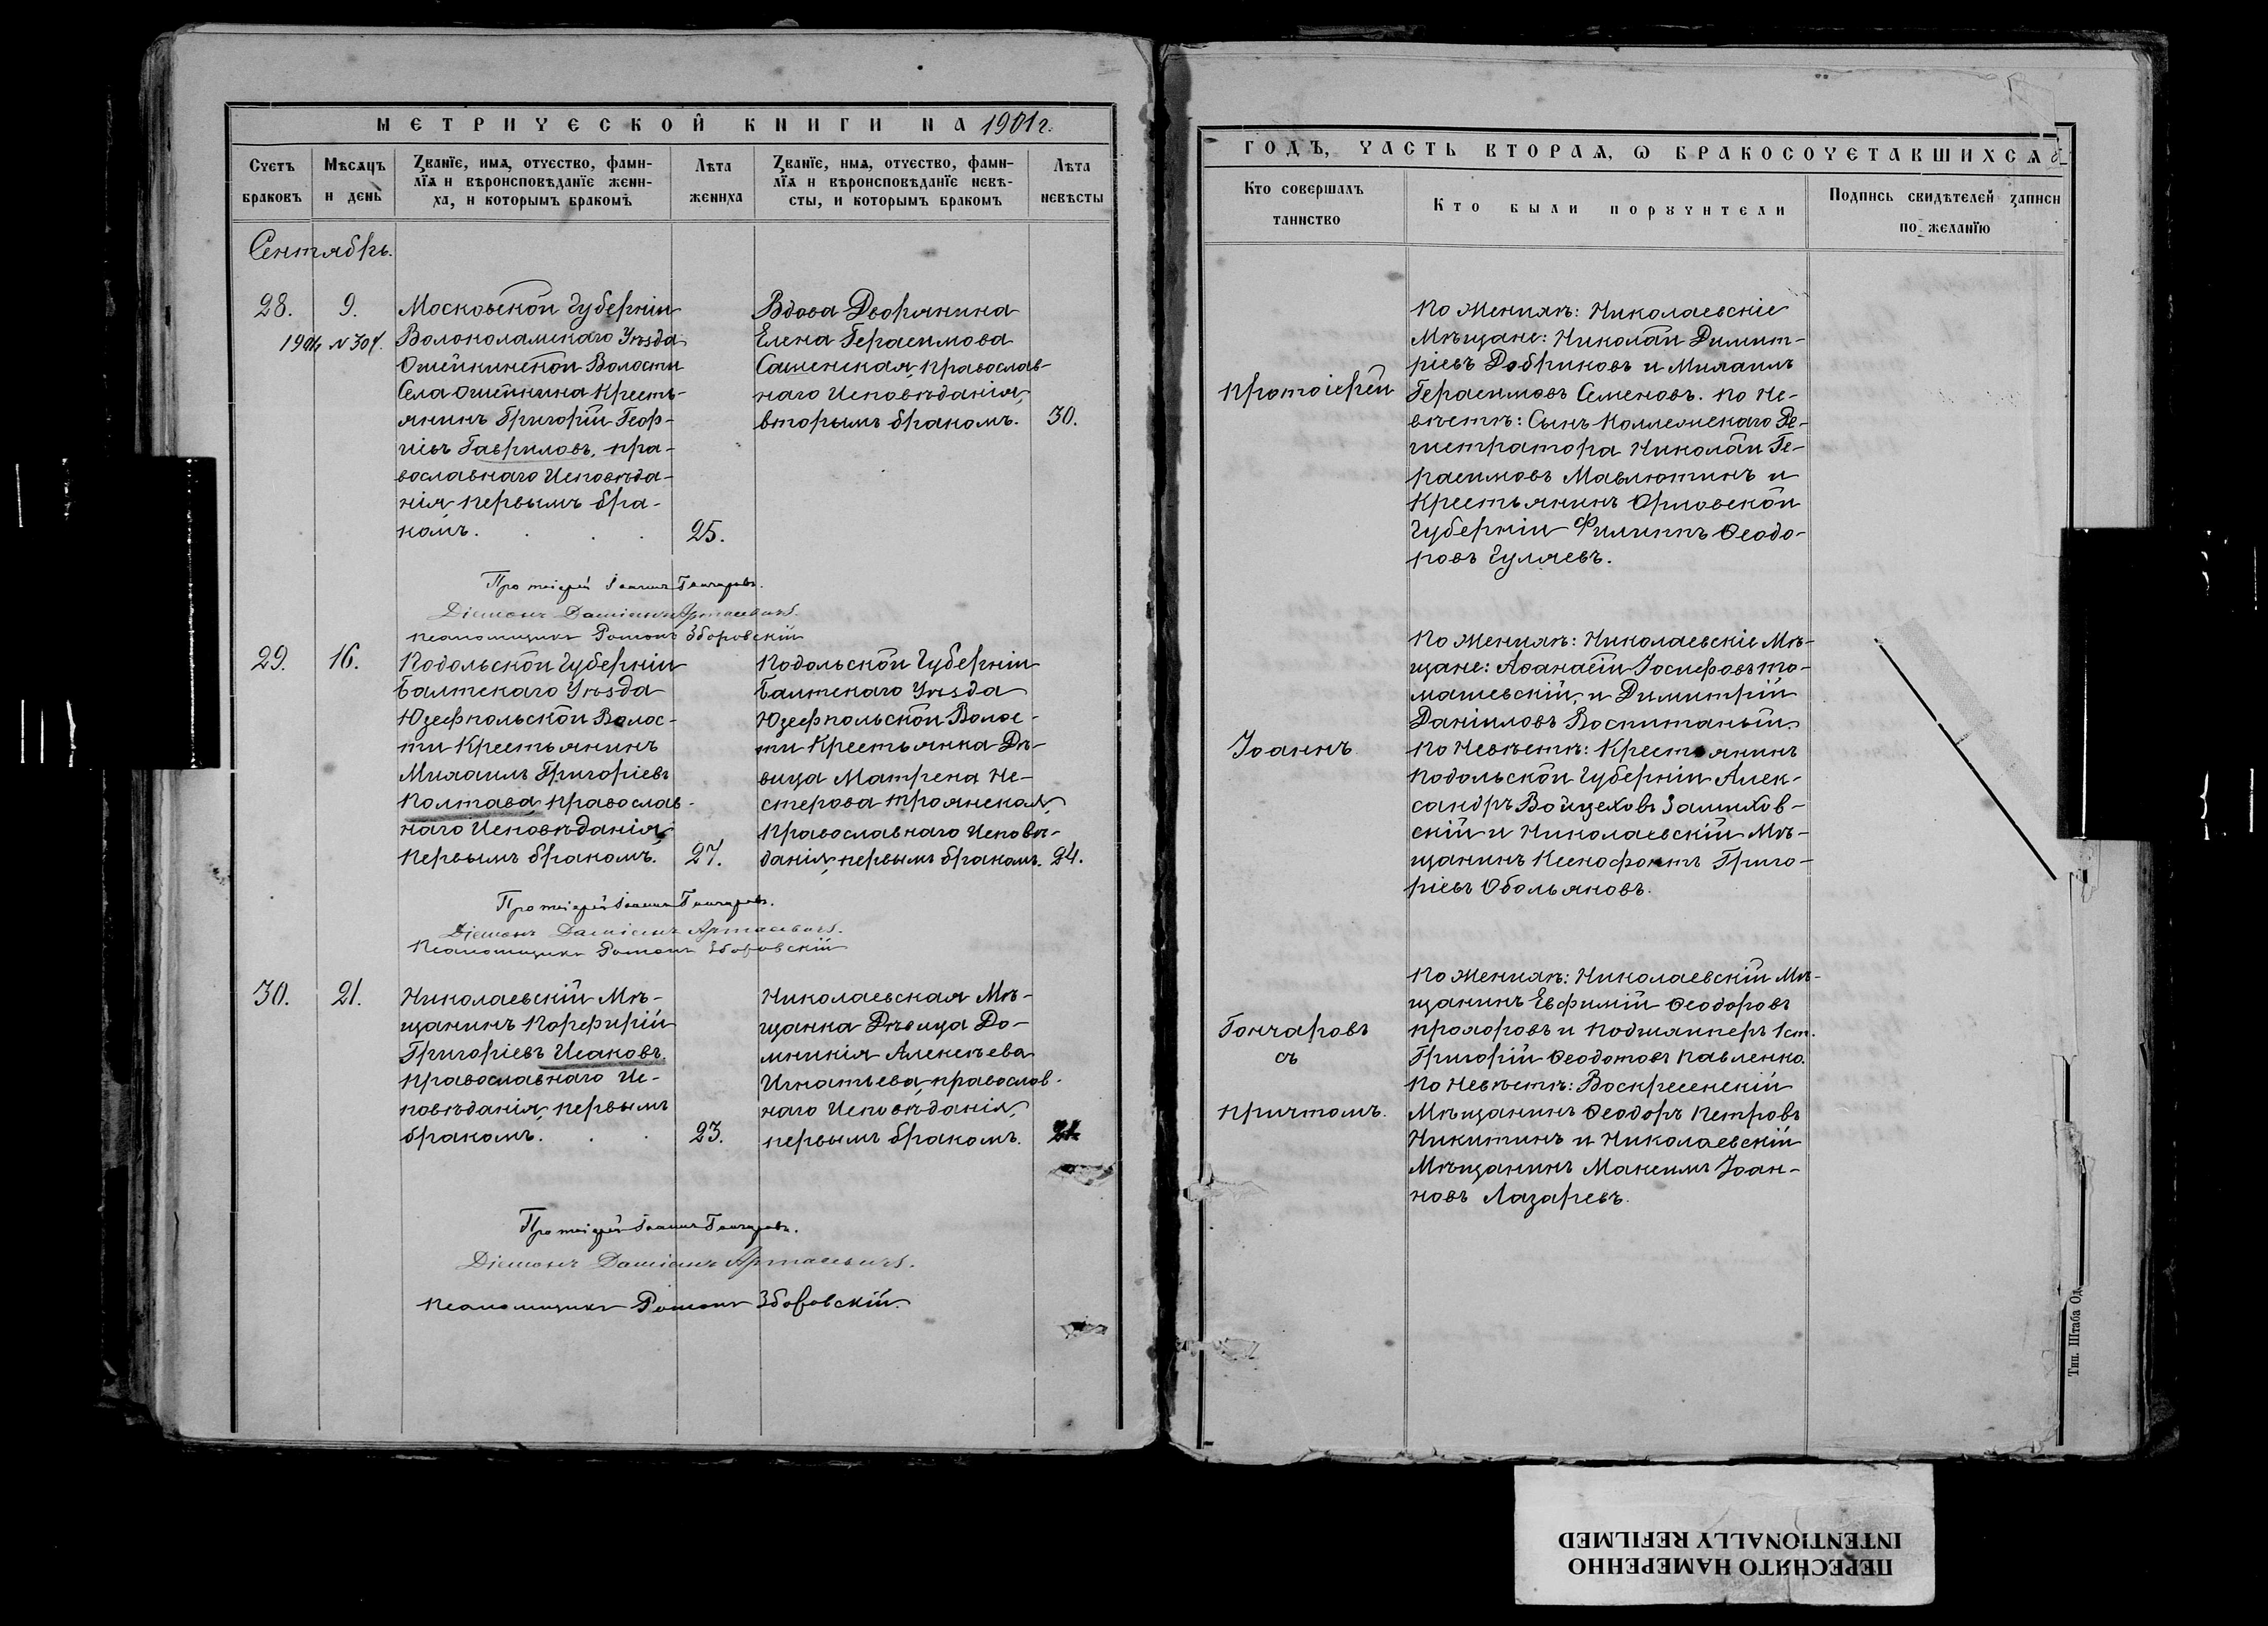 МЕТРИЧЕСКОЙ КНИГИ НА 1901 г.
Счетъ браковъ
Мѣсяцъ и день
Званїе, имя, отчество, фами-
лїя и вѣроисповѣданїе жени-
ха, и которымъ бракомъ
Лѣта жениха
Званїе, имя, отчество, фами-
лїя и вѣроисповѣданїе невѣ-
сты, и которымъ бракомъ
Лѣта невѣсты
Сентябрь.
28.
9.
Московской Губерніи
Волоколамскаго Уѣзда
Ошейкинской Волости
Села Ошейкина Кресть-
янинъ Григорій Геор-
гіевъ Гавриловъ, пра-
вославнаго Исповѣда-
нія, первымъ бра-
комъ.
25.
Вдова Дворянина
Елена Герасимова
православ-
наго Исповѣданія,
вторымъ бракомъ.
30.
Протоіерей Іоаннъ Гончаровъ.
Діаконъ Даміанъ
Псаломщикъ Романъ Зборовскій
29.
16.
Подольской Губерніи
Балтскаго Уѣзда
Юзефпольской Волос-
ти Крестьянинъ
Михаилъ Григоріевъ
Полтава, православ-
наго Исповѣданія,
первымъ бракомъ.
27.
Подольской Губерніи
Балтскаго Уѣзда
Юзефпольской Волос-
ти Крестьянка Дѣ-
вица Матрена Не-
стерова Троянская,
Православнаго Исповѣ-
данія, первымъ бракомъ.
24.
Протоіерей Іоаннъ Гончаровъ.
Діаконъ Даміанъ
Псаломщикъ Романъ Зборовскій
30.
21.
Николаевскій Мѣ-
щанинъ Порфирій
Григоріевъ Исаковъ,
православнаго Ис-
повѣданія, первымъ
бракомъ.
23.
Николаевская Мѣ-
щанка Дѣвица До-
мникія Алексѣева
Игнатьева, православ-
наго Исповѣданія,
первымъ бракомъ.
21.
Протоіерей Іоаннъ Гончаровъ.
Діаконъ Даміанъ
Псаломщикъ Романъ Зборовскій.
ГОДЪ, ЧАСТЬ ВТОРАЯ, Ѡ БРАКОСОЧЕТАВШИХСЯ
Кто совершалъ таинство
Кто были поручители
Подпись свидѣтелей записи
по желанїю
Протоіерей
Іоаннъ
Гончаровъ
съ
причтомъ.
По Женихѣ: Николаевскіе
Мѣщане: Николай Димит-
ріевъ Добриновъ и Михаилъ
Герасимовъ Семеновъ. По Не-
вѣстѣ: Сынъ Коллежскаго Ре-
гистратора Николай Ге-
расимовъ Мавлютинъ и
Крестьянинъ Орловской
Губерніи Филиппъ Ѳеодо-
ровъ Гуляевъ.
По Женихѣ: Николаевскіе Мѣ-
щане: Аѳанасій Іосифовъ То-
машевскій, и Димитрій
Даніиловъ Воспитаный.
По Невѣстѣ: Крестьянинъ
Подольской Губерніи Алек-
сандръ Войцеховъ Залихов-
скій и Николаевскій Мѣ-
щанинъ Ксенофонтъ Григо-
ріевъ Обольяновъ.
По Женихѣ: Николаевскій Мѣ-
щанинъ Евфимій Ѳеодоровъ
Прохоровъ и Подшкиперъ 1 ст.
Григорій Ѳеодотовъ Павленко.
По Невѣстѣ: Воскресенскій
Мѣщанинъ Ѳеодоръ Петровъ
Никитинъ и Николаевскій
Мѣщанинъ Максимъ Іоан-
новъ Лазаревъ.
Тип. Штаба Од.
ПЕРЕСНЯТО НАМЕРЕННО
INTENTIONALLY REFILMED